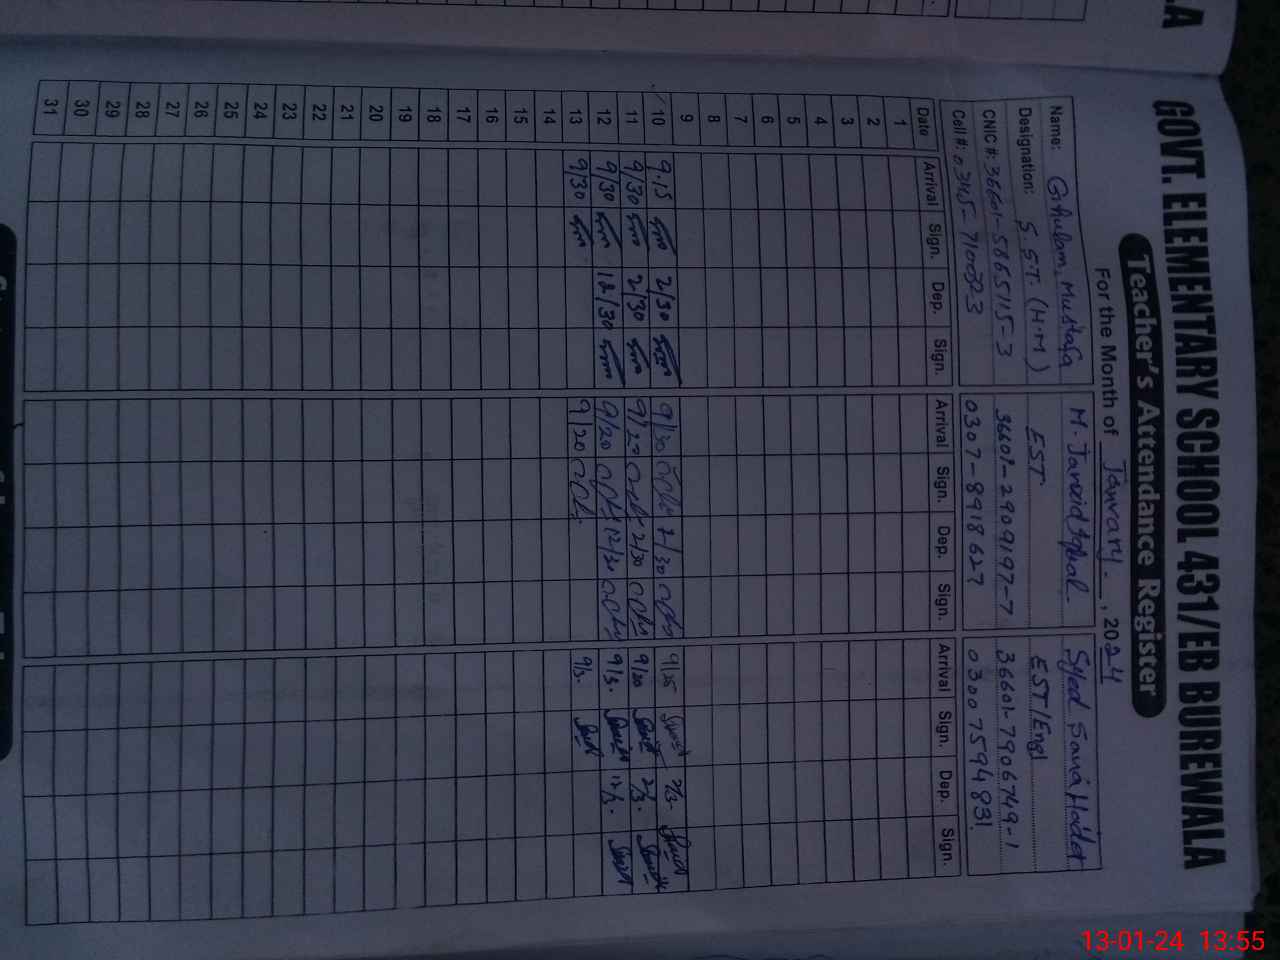 GOVT. ELEMENTARY SCHOOL 431/EB BUREWALA
Teacher's Attendance Register
For the Month of January. , 2024
Name: Ghulam Mustafa M. Javaid Iqbal. Syed
Designation: S.S.T. (H.M) EST EST/Engl
CNIC #: 36601-5865115-3 36601-2909197-7 36601-7906749-1
Cell #: 0345-7100323 0307-8918627 03007594831
Date Arrival Sign. Dep. Sign. Arrival Sign. Dep. Sign. Arrival Sign. Dep. Sign.
1
2
3
4
5
6
7
8
9
10 9.15 2/30 9/30 2/30 9/25 2/3-
11 9/30 2/30 9/20 2/30 9/20 2/3.
12 9/30 12/30 9/20 12/30 9/3. 12/3.
13 9/30 9/20 9/3.
14
15
16
17
18
19
20
21
22
23
24
25
26
27
28
29
30
31
13-01-24 13:55